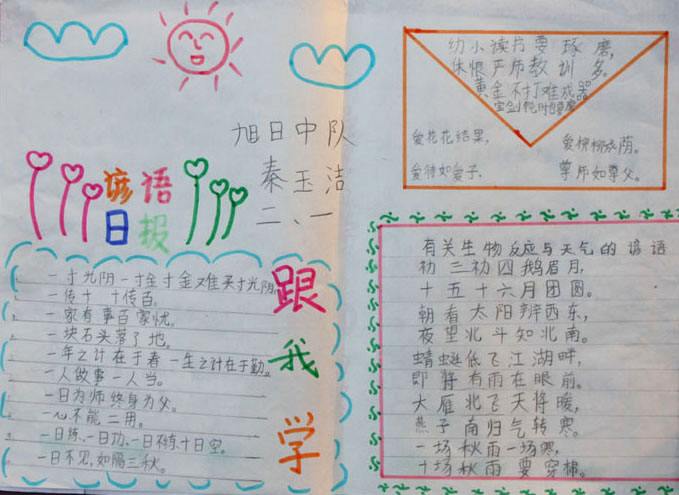 谚语
日报
旭日中队
秦玉洁
二、一
一寸光阴一寸金寸金难买寸光阴,
一传十 十传百。
一家有事百家忧。
一块石头落了地。
一年之计在于春一生之计在于勤。
一人做事一人当。
一日为师终身为父。
一心不能二用。
一日练、一日功、一日不练十日空。
一日不见,如隔三秋。
跟
我
学
幼小读书要琢磨,
休恨严师教训多。
黄金不打难成器
宝剑
爱花花结果,
爱柳柳成荫。
爱徒如爱子,
尊师如尊父。
有关生物反应与天气的谚语
初三初四鹅眉月,
十五十六月团圆。
朝看太阳辨西东,
夜望北斗知北南。
蜻蜓低飞江湖畔,
即将有雨在眼前。
大雁北飞天将暖,
燕子南归气转寒。
一场秋雨一场寒,
十场秋雨要穿棉。